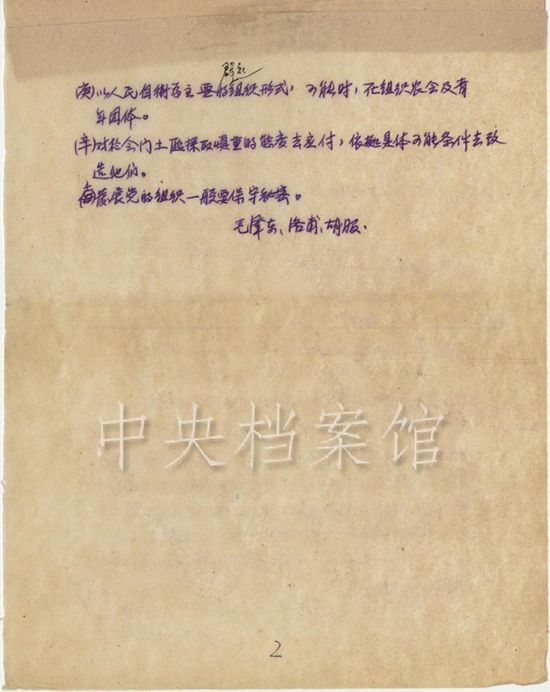 群众
(庚)以人民自衛为主要的组织形式，可能时，在组织农会及青
年团体。
(辛)对於会门土匪採取慎重的態度去应付，依據具体可能条件去改
造他们。
发展党的组织一般要保守秘密。
毛泽东、洛甫、胡服.
中央档案馆
2